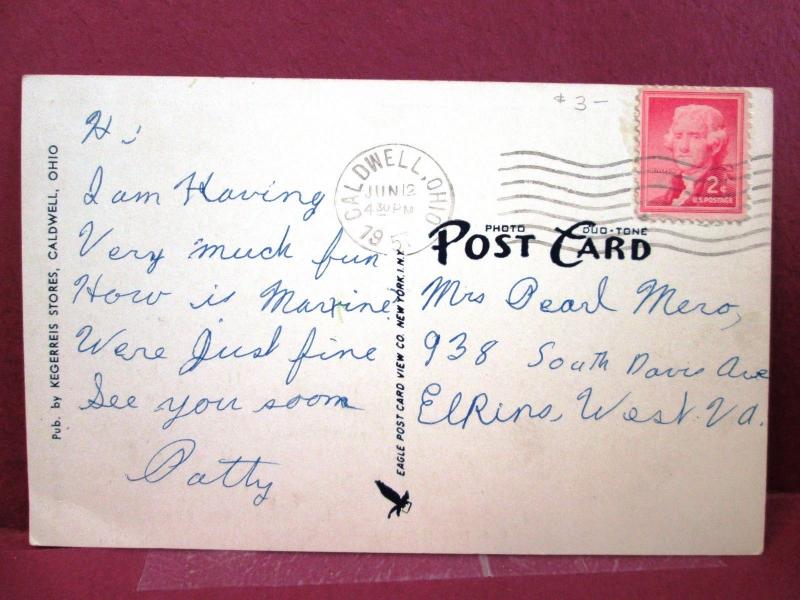 $ 3-
Hi
I am Having
Very much fun
How is Maxine
Were Just fine
See you soon
Patty
Pub. by KEGERREIS STORES, CALDWELL, OHIO
CALDWELL, OHIO
JUN 12
4 30 PM
195
2¢
U.S. POSTAGE
PHOTO DUO-TONE
POST CARD
EAGLE POST CARD VIEW CO. NEW YORK. I. N.Y.
Mrs Pearl Mero,
938 South Davis Ave
Elkins, West. Va.